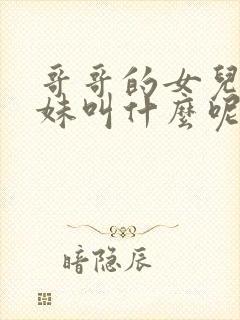 哥哥的女兒
妹叫什麼呢
暗隐辰